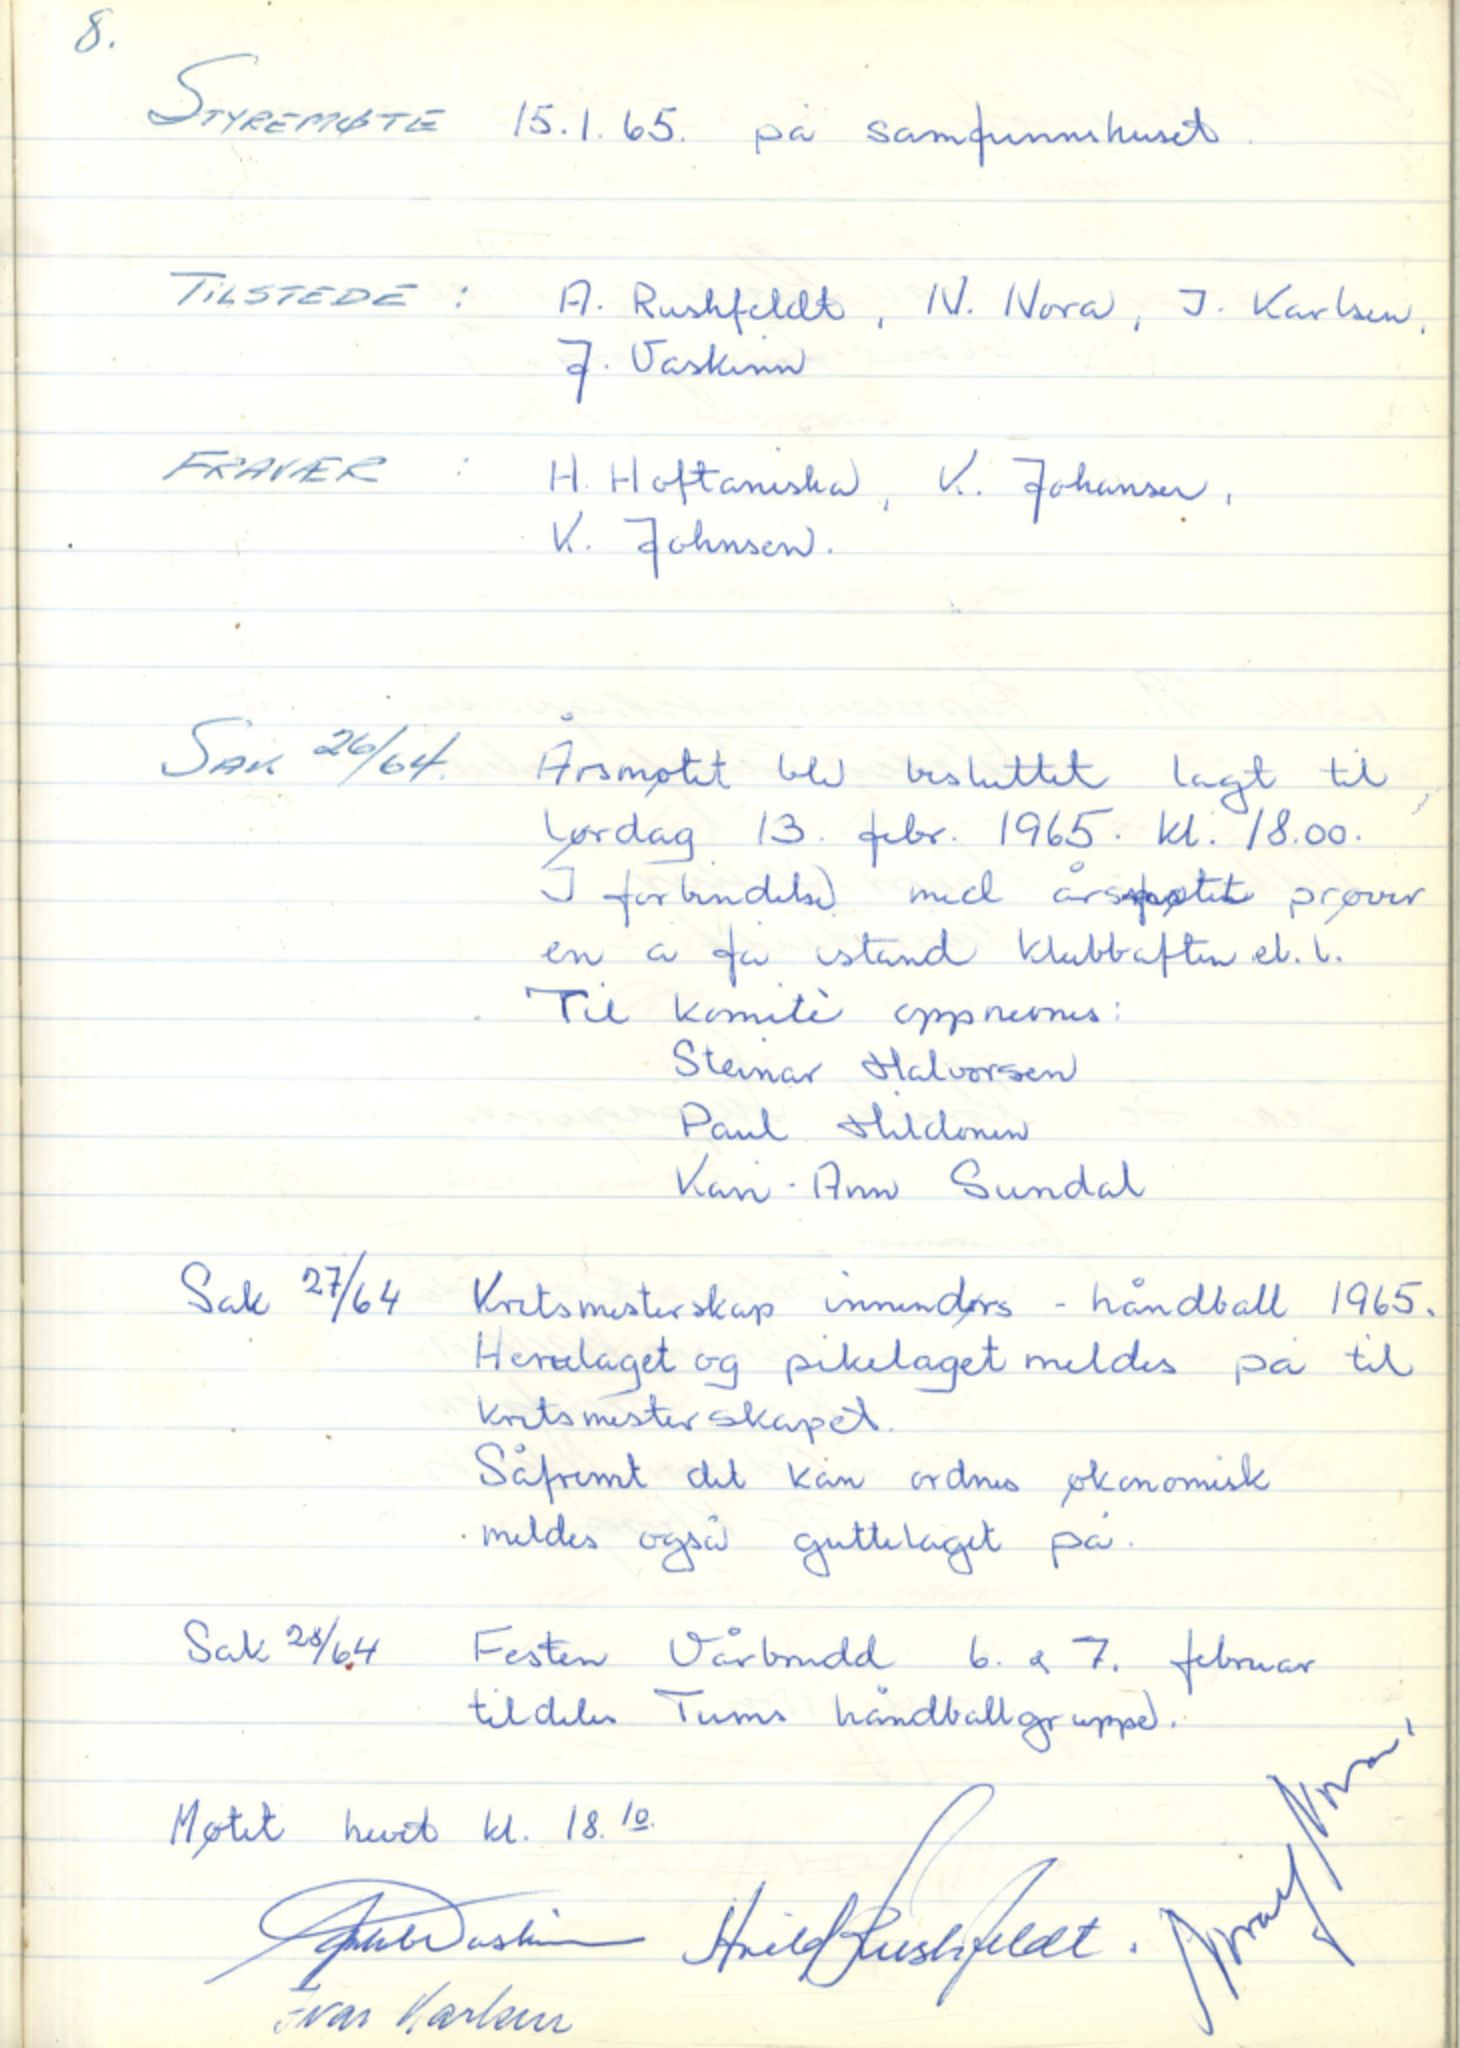 8.
STYREMØTE 15.1.65. på samfunnshuset.
TILSTEDE : A. Rushfeldt, N. Nora, I. Karlsen,
J. Vaskinn
FRAVÆR : H. Hoftaniska, K. Johansen,
K. Johnsen.
SAK 26/64. Årsmøtet ble besluttet lagt til
lørdag 13. febr. 1965. kl. 18.00.
I forbindelse med årsmøtet prøver
en å få istand klubbaften el. l.
Til komitè oppnevnes:
Steinar Halvorsen
Paul Hildonen
Kari-Ann Sundal
Sak 27/64 Kretsmesterskap innendørs - håndball 1965.
Herrelaget og pikelaget meldes på til
kretsmesterskapet.
Såfremt det kan ordnes økonomisk
meldes også guttelaget på.
Sak 28/64 Festen Vårbrudd 6. & 7. februar
tildeles Turns håndballgruppe.
Møtet hevet kl. 18.10.
Vaskinn Arild Rushfeldt. Nora
Ivar Karlsen